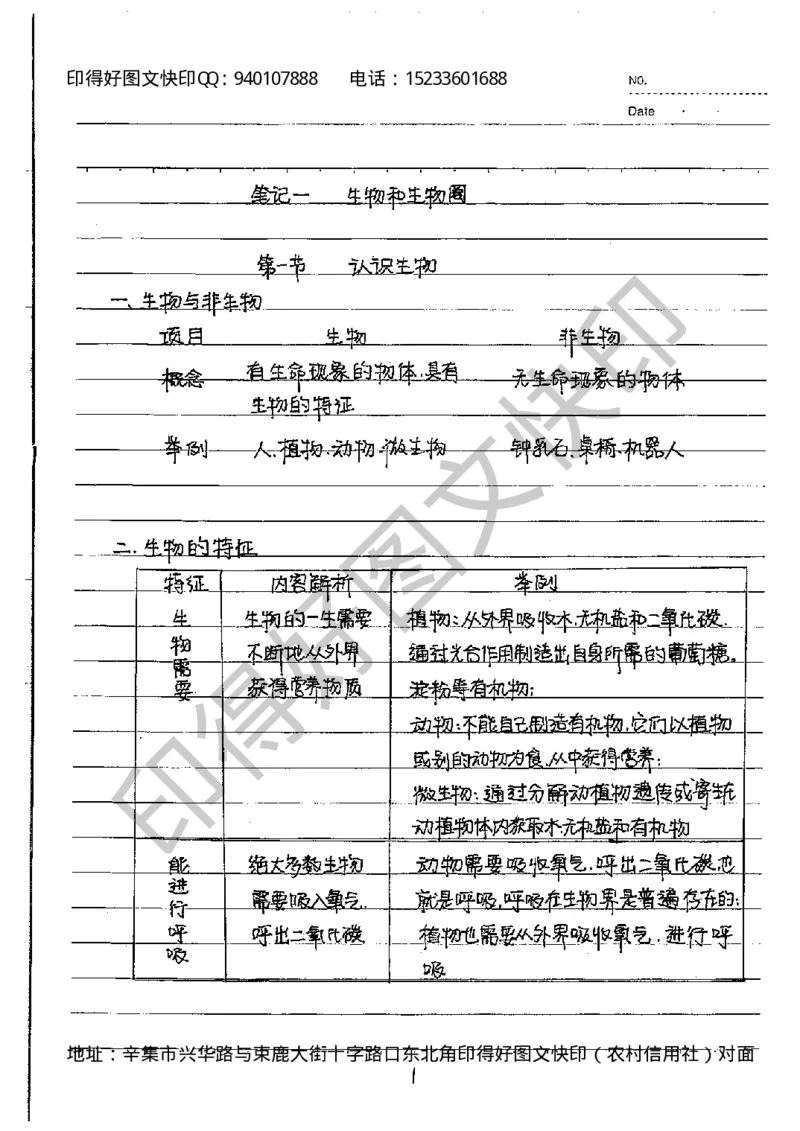 印得好图文快印QQ：940107888 电话：15233601688
NO.
Date
笔记一 生物和生物圈
第一节 认识生物
一、生物与非生物
项目 生物 非生物
概念 有生命现象的物体，具有 无生命现象的物体
生物的特征
举例 人、植物、动物、微生物 钟乳石、桌椅、机器人
二、生物的特征
特征 内容解析 举例
生 生物的一生需要 植物：从外界吸收水、无机盐和二氧化碳，
物 不断地从外界 通过光合作用制造出自身所需的葡萄糖。
需
要 获得营养物质 淀粉等有机物；
动物：不能自己制造有机物，它们以植物
或别的动物为食，从中获得营养；
微生物：通过分解动植物遗传或寄生在
动植物体内获取水、无机盐和有机物
能 绝大多数生物 动物需要吸收氧气，呼出二氧化碳也
进
行 需要吸入氧气， 就是呼吸，呼吸在生物界是普遍存在的；
呼 呼出二氧化碳 植物也需要从外界吸收氧气，进行呼
吸 吸
地址：辛集市兴华路与束鹿大街十字路口东北角印得好图文快印（农村信用社）对面
1
印得好图文快印